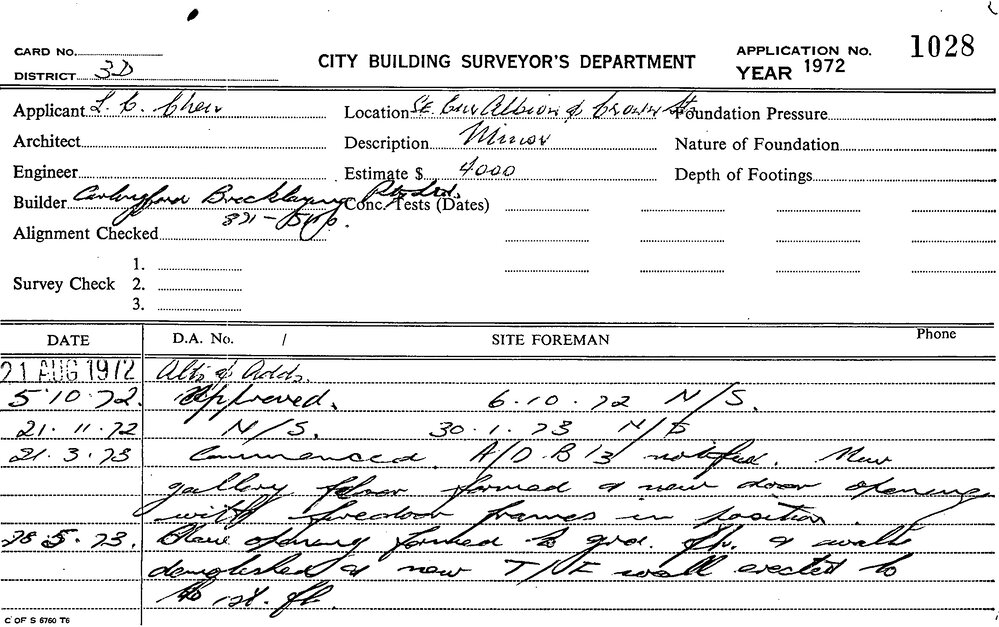 CARD No.
DISTRICT 3D
CITY BUILDING SURVEYOR'S DEPARTMENT
APPLICATION No. 1028
YEAR 1972
Applicant L. C. Chen
Location SE. Cnr Albion & Crown St.
Foundation Pressure
Architect
Description Minor
Nature of Foundation
Engineer
Estimate $ 4000
Depth of Footings
Builder Bricklaying Pty Ltd.
Conc. Tests (Dates)
Alignment Checked
Survey Check
1.
2.
3.
DATE
D.A. No. /
SITE FOREMAN
Phone
21 AUG 1972 Alts & Adds.
5.10.72. Approved. 6.10.72 N/S.
21.11.72 N/S. 30.1.73 N/S
21.3.73 Commenced. A/D.B 13 notified. New
gallery floor formed & new door opening
with firedoor frames in position.
28.5.73. opening formed to grd. flr. & walls
demolished & new wall erected to
the 1st. fl.
C OF S 6760 T6